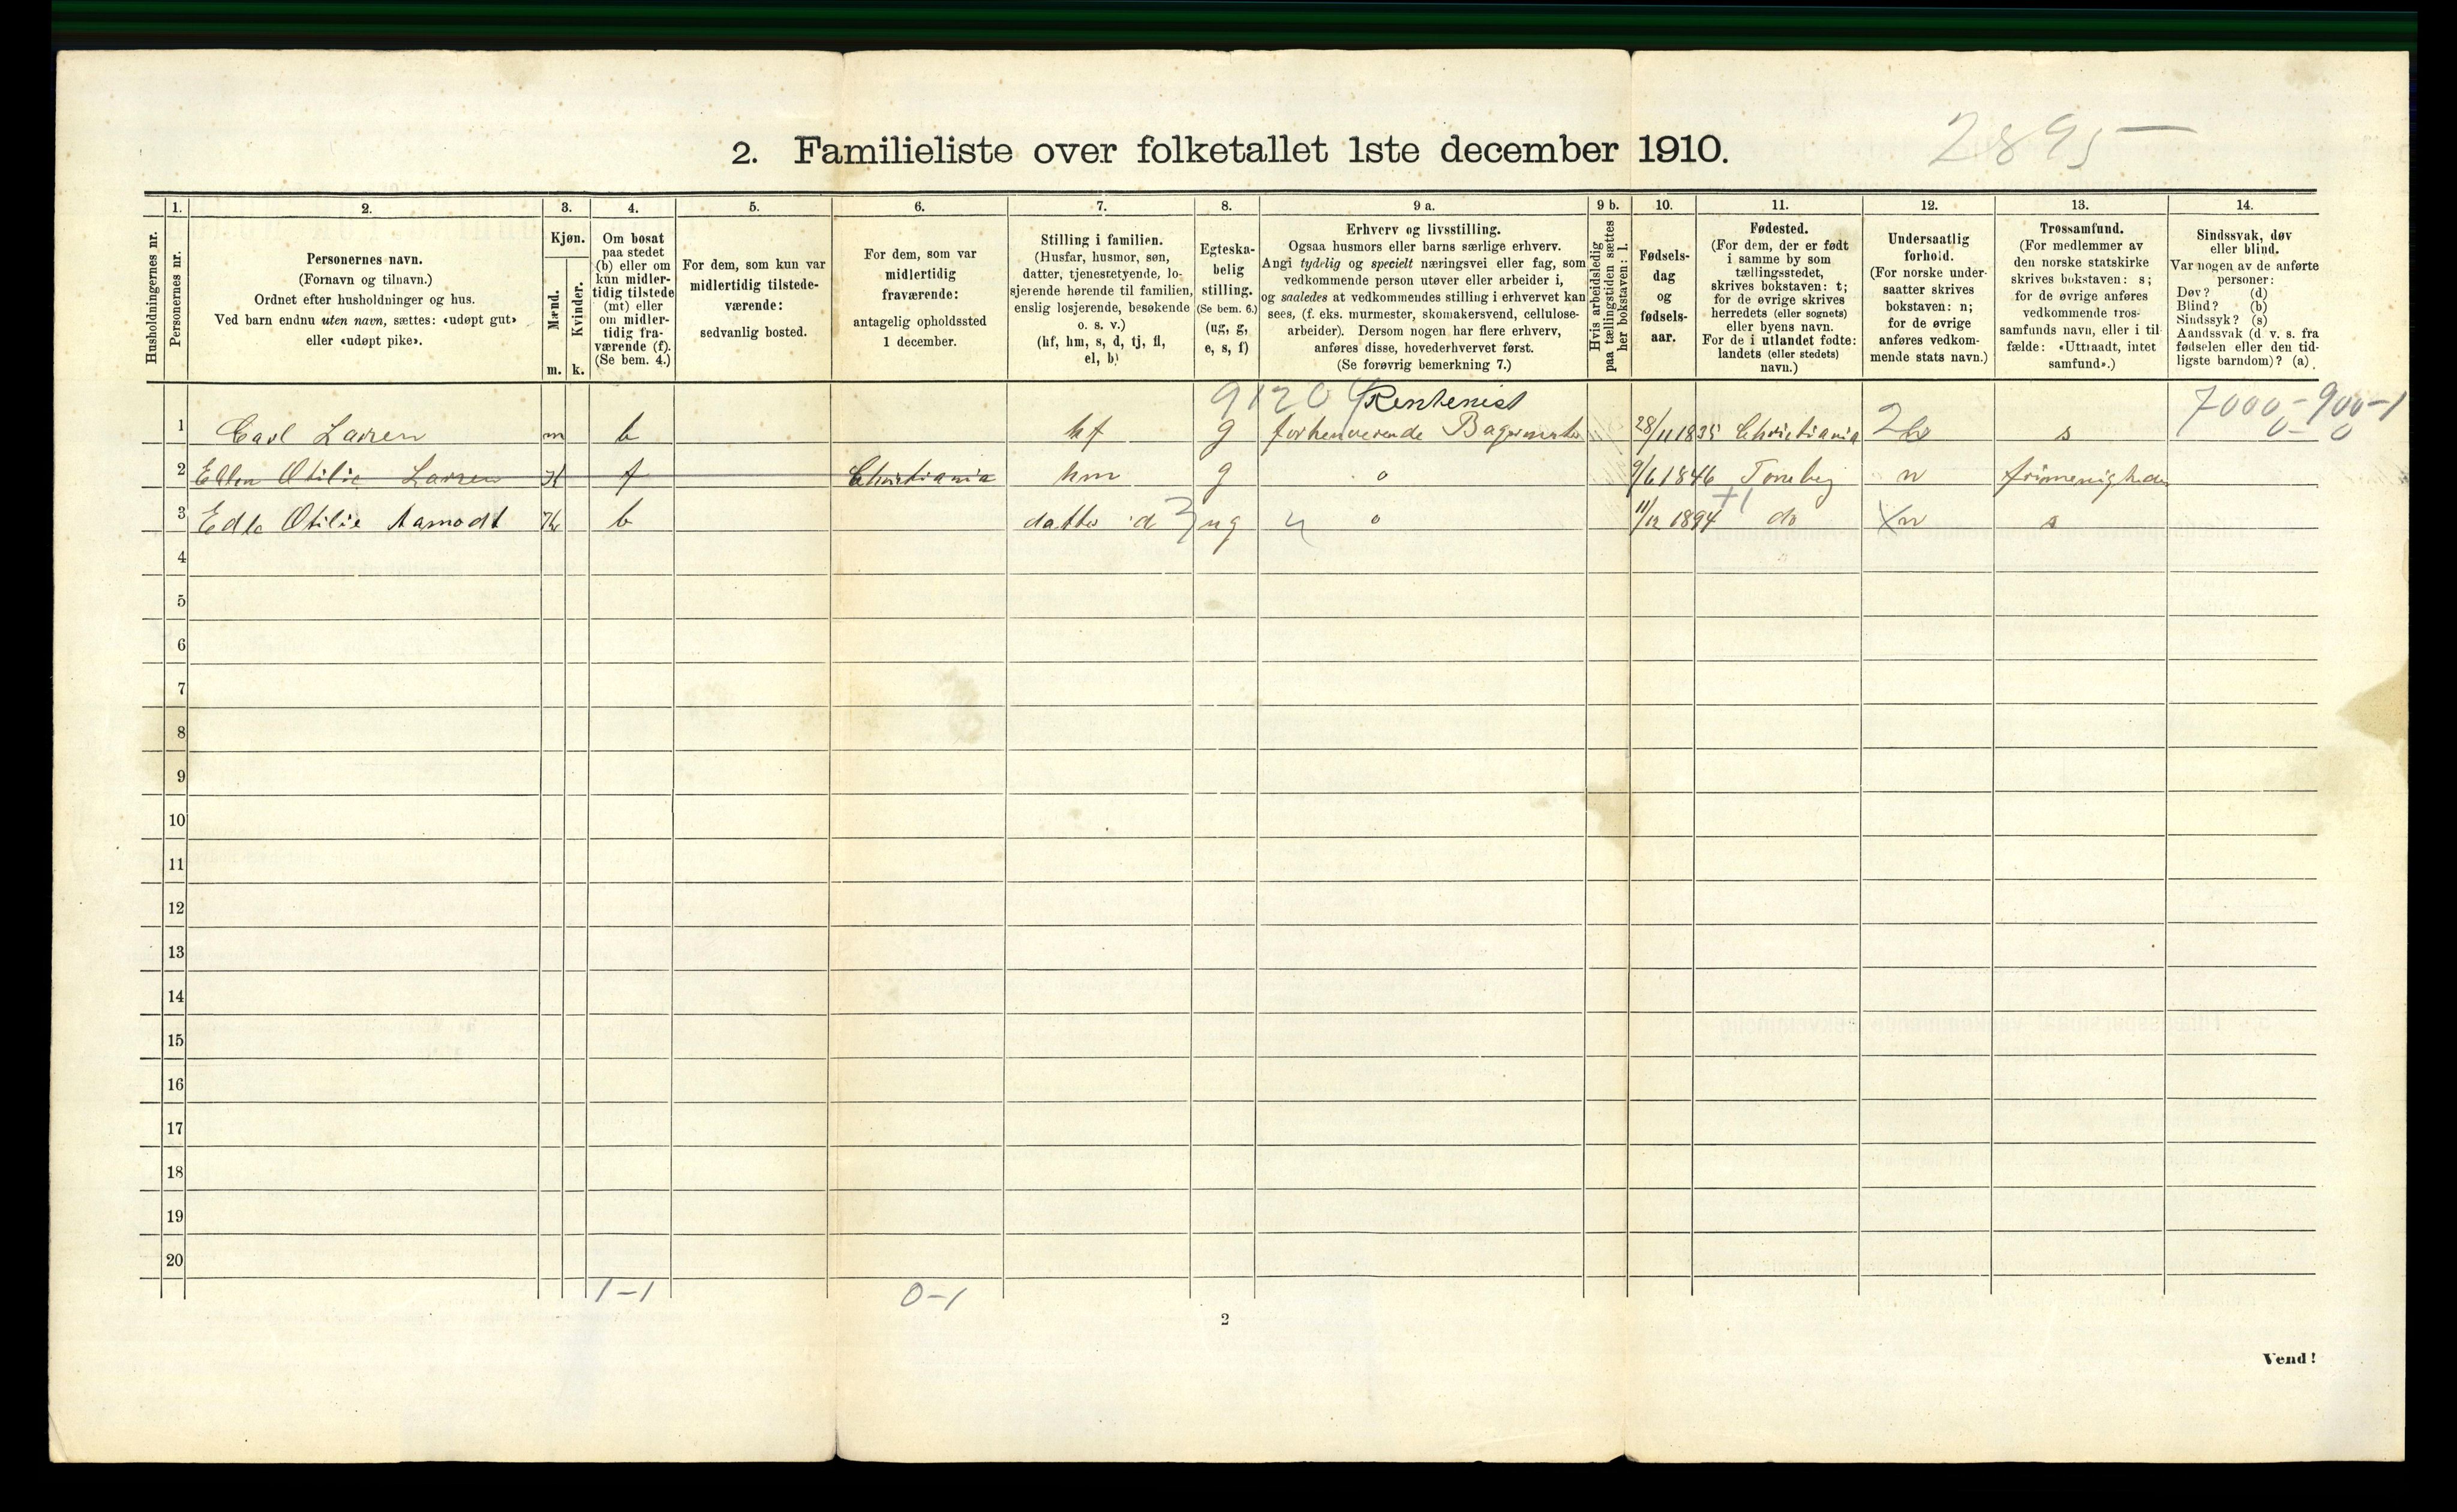 2895
2. Familieliste over folketallet 1ste december 1910.
Husholdningernes nr.
1.
Personernes nr.
2.
Personernes navn.
(Fornavn og tilnavn.)
Ordnet efter husholdninger og hus.
Ved barn endnu uten navn, sættes: «udøpt gut»
eller «udøpt pike».
3.
Kjøn.
Mænd.
Kvinder.
m.
k.
4.
Om bosat
paa stedet
(b) eller om
kun midler-
tidig tilstede
(mt) eller
om midler-
tidig fra-
værende (f).
(Se bem. 4.)
5.
For dem, som kun var
midlertidig tilstede-
værende:
sedvanlig bosted.
6.
For dem, som var
midlertidig
fraværende:
antagelig opholdssted
1 december.
7.
Stilling i familien.
(Husfar, husmor, søn,
datter, tjenestetyende, lo-
sjerende hørende til familien,
enslig losjerende, besøkende
o. s. v.)
(hf, hm, s, d, tj, fl,
el, b)
8.
Egteska-
belig
stilling.
(Se bem. 6.)
(ug, g,
e, s, f)
9 a.
Erhverv og livsstilling.
Ogsaa husmors eller barns særlige erhverv.
Angi tydelig og specielt næringsvei eller fag, som
vedkommende person utøver eller arbeider i,
og saaledes at vedkommendes stilling i erhvervet kan
sees, (f. eks. murmester, skomakersvend, cellulose-
arbeider). Dersom nogen har flere erhverv,
anføres disse, hovederhvervet først.
(Se forøvrig bemerkning 7.)
9 b.
Hvis arbeidsledig
paa tællingstiden sættes
her bokstaven: l.
10.
Fødsels-
dag
og
fødsels-
aar.
11.
Fødested.
(For dem, der er født
i samme by som
tællingsstedet,
skrives bokstaven: t;
for de øvrige skrives
herredets (eller sognets)
eller byens navn.
For de i utlandet fødte:
landets (eller stedets)
navn.)
12.
Undersaatlig
forhold.
(For norske under-
saatter skrives
bokstaven: n;
for de øvrige
anføres vedkom-
mende stats navn.)
13.
Trossamfund.
(For medlemmer av
den norske statskirke
skrives bokstaven: s;
for de øvrige anføres
vedkommende tros-
samfunds navn, eller i til-
fælde: «Uttraadt, intet
samfund».)
14.
Sindssvak, døv
eller blind.
Var nogen av de anførte
personer:
Døv? (d)
Blind? (b)
Sindssyk? (s)
Aandssvak (d. v. s. fra
fødselen eller den tid-
ligste barndom)? (a)
9120 Rentenist 7000-900-1
1 Carl Larsen m b hf g forhenverende 28/11 1835 Christiania s 0-0
2 Ellen Otilie Larsen K f Christiania hm g o 9/6 1846 n
3 Edle Otilie Aamodt K b datter d ug o 11/12 1894 do n s
4
5
6
7
8
9
10
11
12
13
14
15
16
17
18
19
20
1-1 0-1
2
Vend!